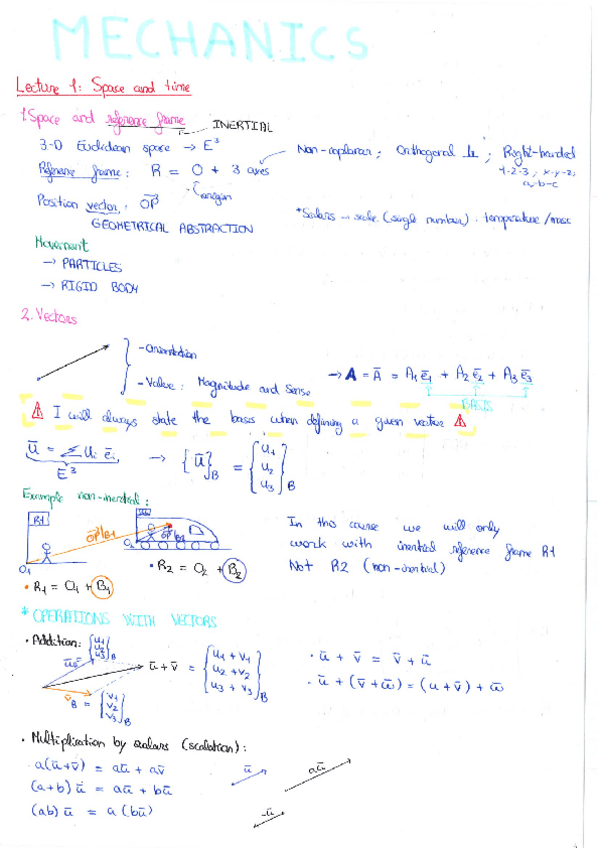 MECHANICS
Lecture 1: Space and time
1. Space and reference frame
INERTIAL
3-D Euclidean space → E³
Non-coplanar; Orthogonal ⊥; Right-handed
1-2-3; x-y-z;
a-b-c
Reference frame: R = O + 3 axes
origin
Position vector: OP
GEOMETRICAL ABSTRACTION
*Scalars → scale (single number). temperature/mass
Movement
→ PARTICLES
→ RIGID BODY
2. Vectors
- Orientation
- Value: Magnitude and Sense
→ A = Ā = A₁ē₁ + A₂ē₂ + A₃ē₃
BASIS
⚠ I will always state the basis when defining a given vector ⚠
ū = Σ uᵢ ēᵢ → {ū}B = {u₁ u₂ u₃}B
E³
Example non-inertial:
R1
OP|R1
OP|R2
O₁
O₂
• R₂ = O₂ + B₂
• R₁ = O₁ + B₁
In this course we will only
work with inertial reference frame R1
Not R2 (non-inertial)
* OPERATIONS WITH VECTORS
• Addition: {u₁ u₂ u₃}B
ū + v̄ = {u₁ + v₁ u₂ + v₂ u₃ + v₃}B
v̄B = {v₁ v₂ v₃}B
• ū + v̄ = v̄ + ū
• ū + (v̄ + w̄) = (u + v̄) + w̄
• Multiplication by scalars (scalation):
a(ū+v̄) = aū + av̄
(a+b)ū = aū + bū
(ab)ū = a(bū)
ū
aū
-ū